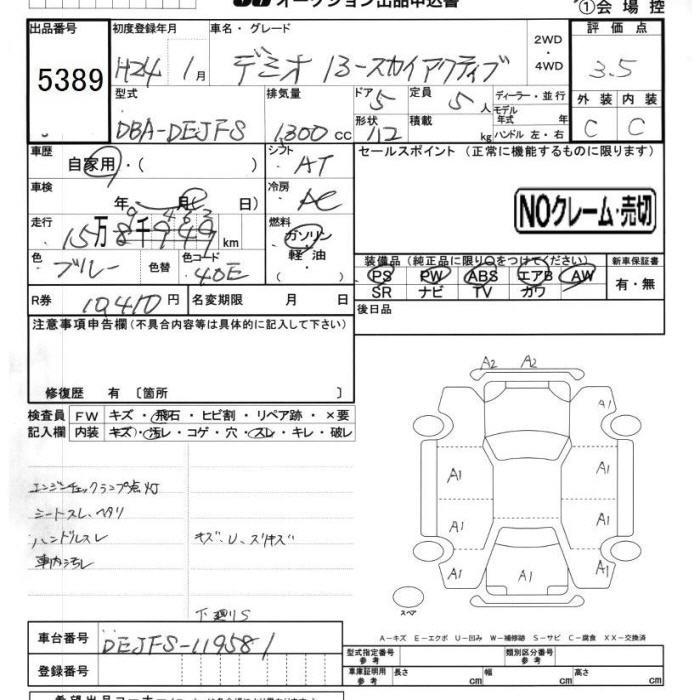 オークション出品申込書
①会場控
出品番号
5389
初度登録年月
H24 1月
車名・グレード
デミオ 13-スカイアクティブ
2WD
・
4WD
評価点
3.5
型式
DBA-DEJFS
排気量
1300cc
ドア
5
定員
5人
形状
積載
kg
ディーラー・並行
モデル
年式 年
ハンドル 左・右
外装 内装
C C
車歴
自家用・( )
シフト
AT
セールスポイント (正常に機能するものに限ります)
車検
年 月( 日)
冷房
AC
NOクレーム・売切
走行
15万8千949km
燃料
ガソリン
軽油
( )
色
ブルー
色替
色コード
40E
装備品(純正品に限り○をつけてください)
PS PW ABS エアB AW
SR ナビ TV カワ
新車保証書
有・無
R券
10,410円
名変期限 月 日
後日品
注意事項申告欄(不具合内容等は具体的に記入して下さい)
修復歴 有 〔箇所 〕
検査員
記入欄
FW キズ・飛石・ヒビ割・リペア跡・×要
内装 キズ・汚レ・コゲ・穴・スレ・キレ・破レ
エンジンチェックランプ点灯
シートスレ、ヘタリ
ハンドルスレ
車内汚レ
キズ、U、スリキズ
下廻りS
A2 A2
A1
A1 A1
A1 A1
A1 A1 A1
スペア
A-キズ E-エクボ U-凹み W-補修跡 S-サビ C-腐食 XX-交換済
車台番号
DEJFS-119581
登録番号
型式指定番号
参考
類別区分番号
参考
車庫証明用
参考
長さ cm
幅 cm
高さ cm
希望出品コーナー